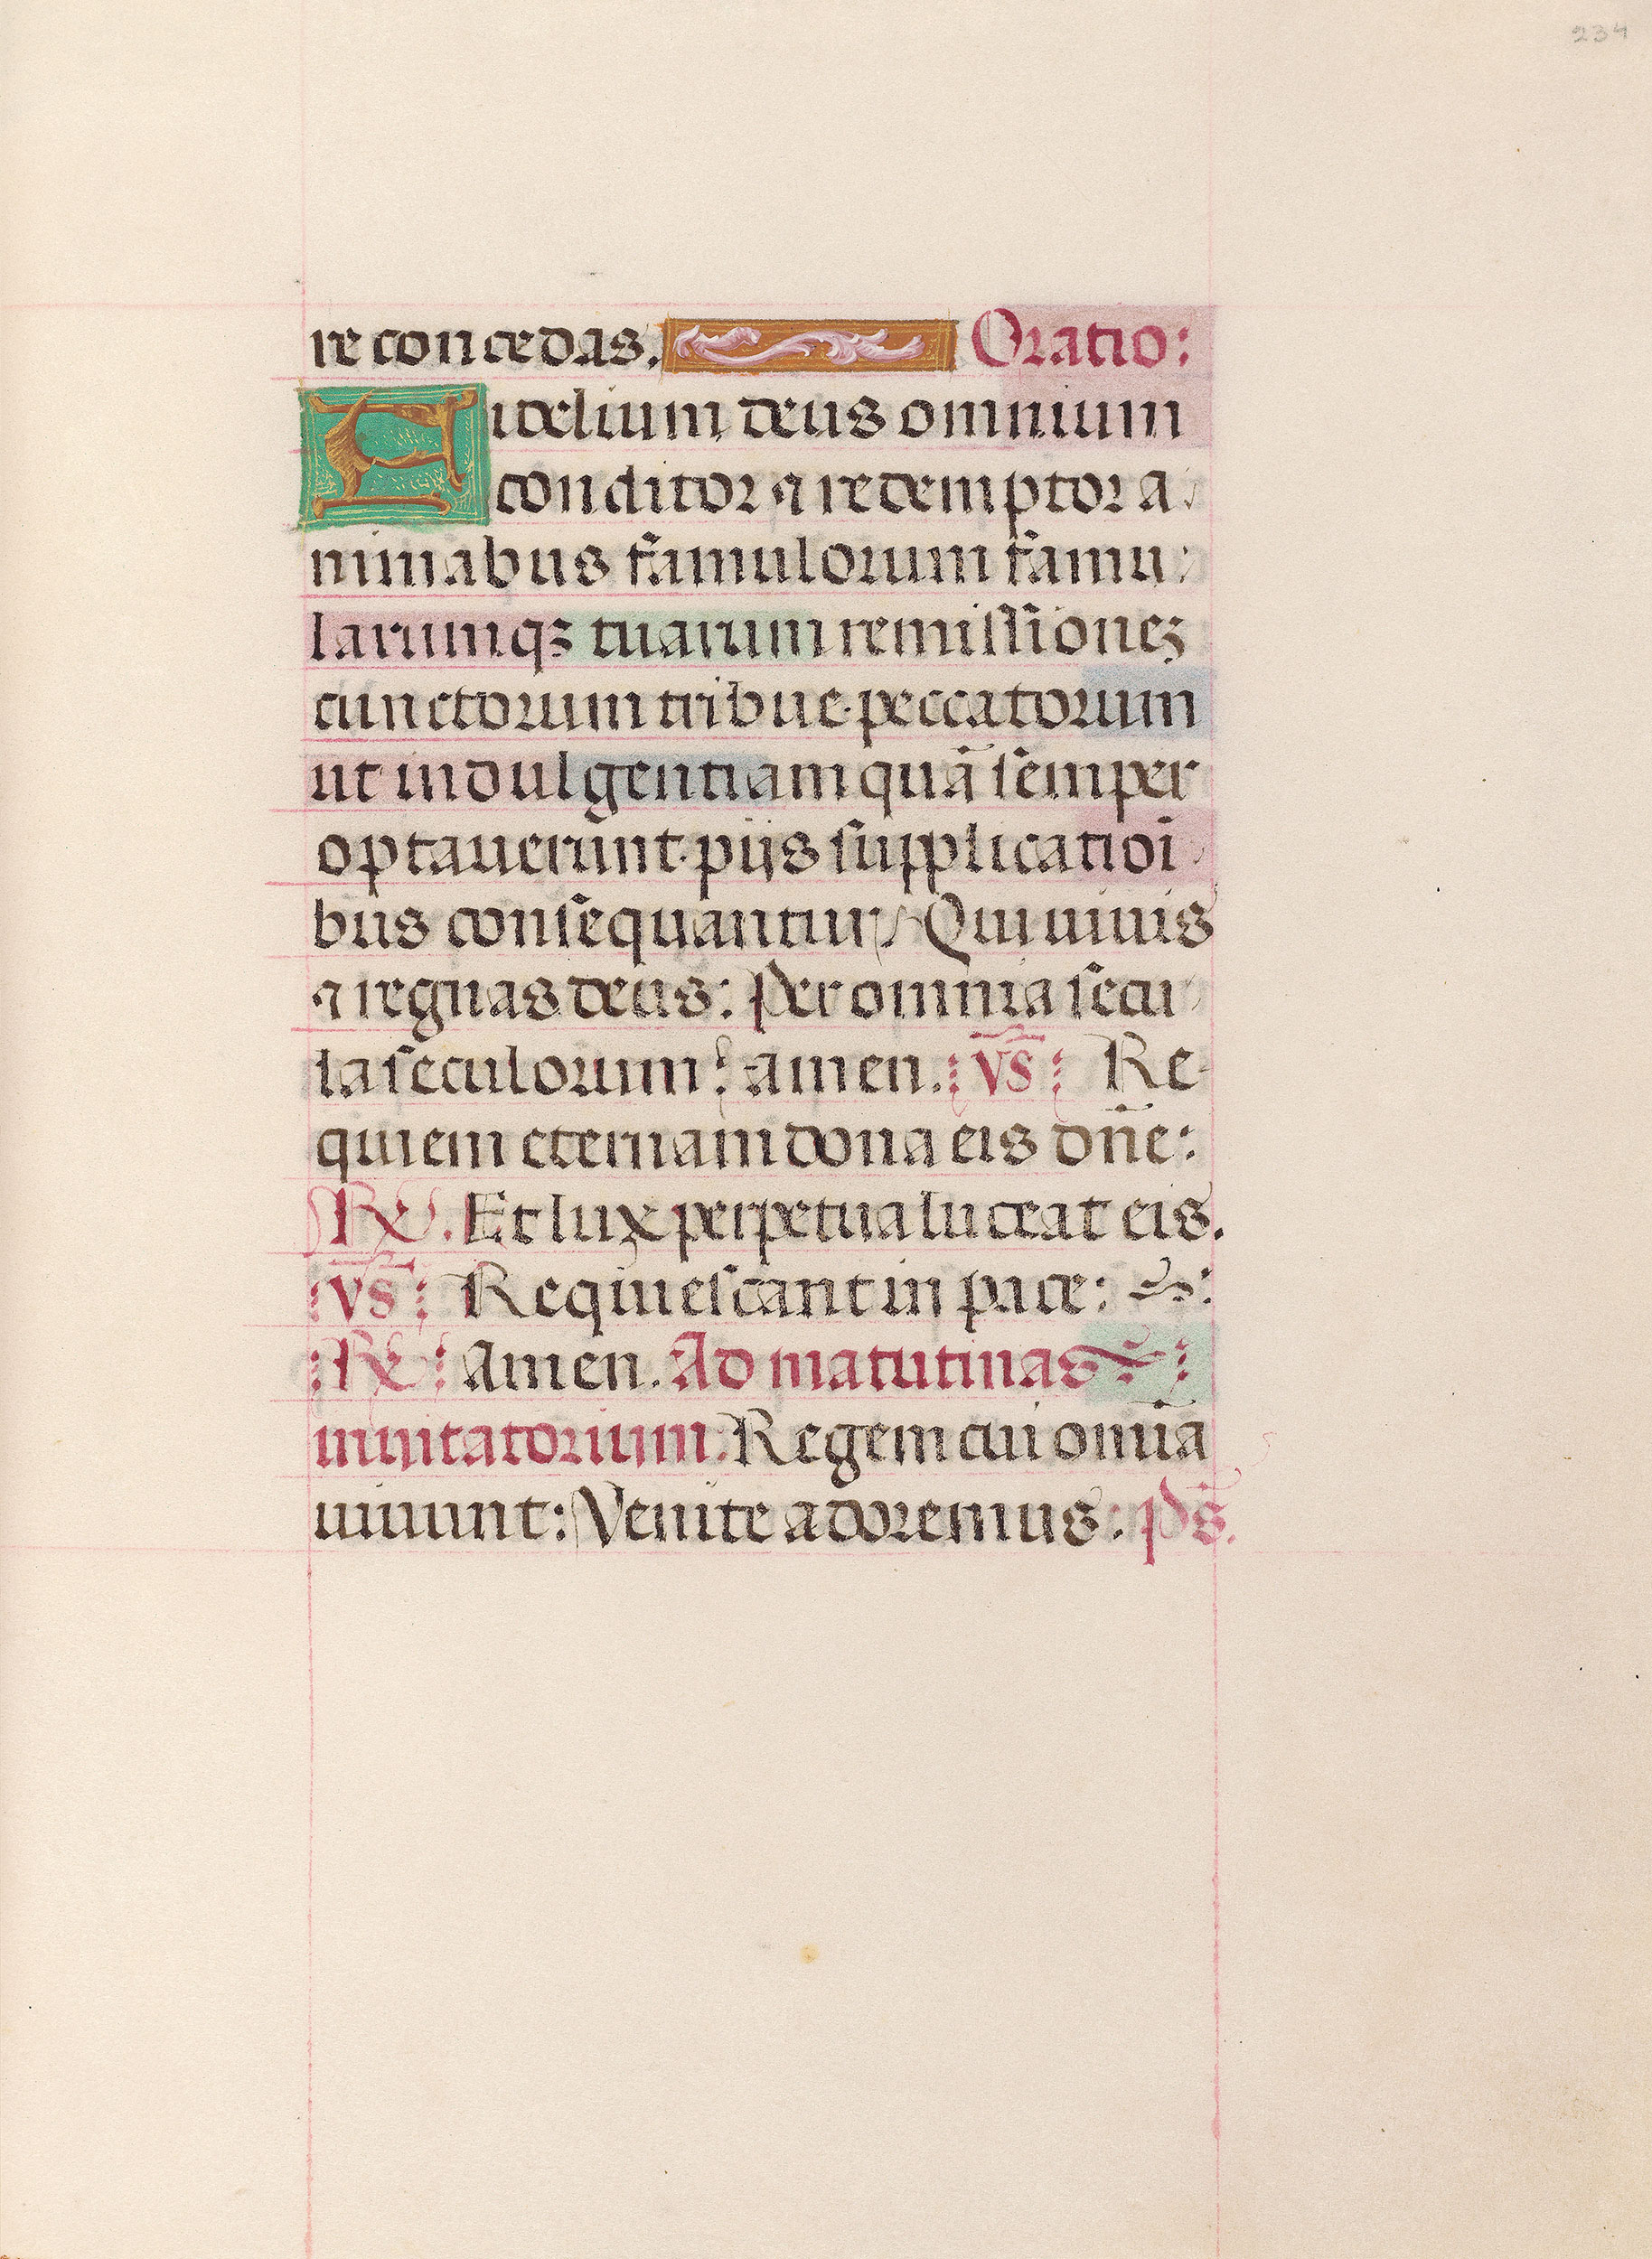 234
re concedas. Oratio:
Fidelium deus omnium
conditor ⁊ redemptor a
nimabus famulorum famu
larumqꝫ tuarum remissioneʒ
cunctorum tribue·peccatorum
ut indulgentiam quā semper
optauerunt·piis supplicatioī
bus consequantur. Qui uiuis
⁊ regnas deus: Per omnia secu
la seculorum: amen. vs̄: Re-
quiem eternam dona eis dn̄e:
℟. Et lux perpetua luceat eis.
vs̄: Requiescant in pace:
℟: Amen. Ad matutinas:
inuitatorium. Regem cui omīa
uiuunt: Venite adoremus: ps̄.